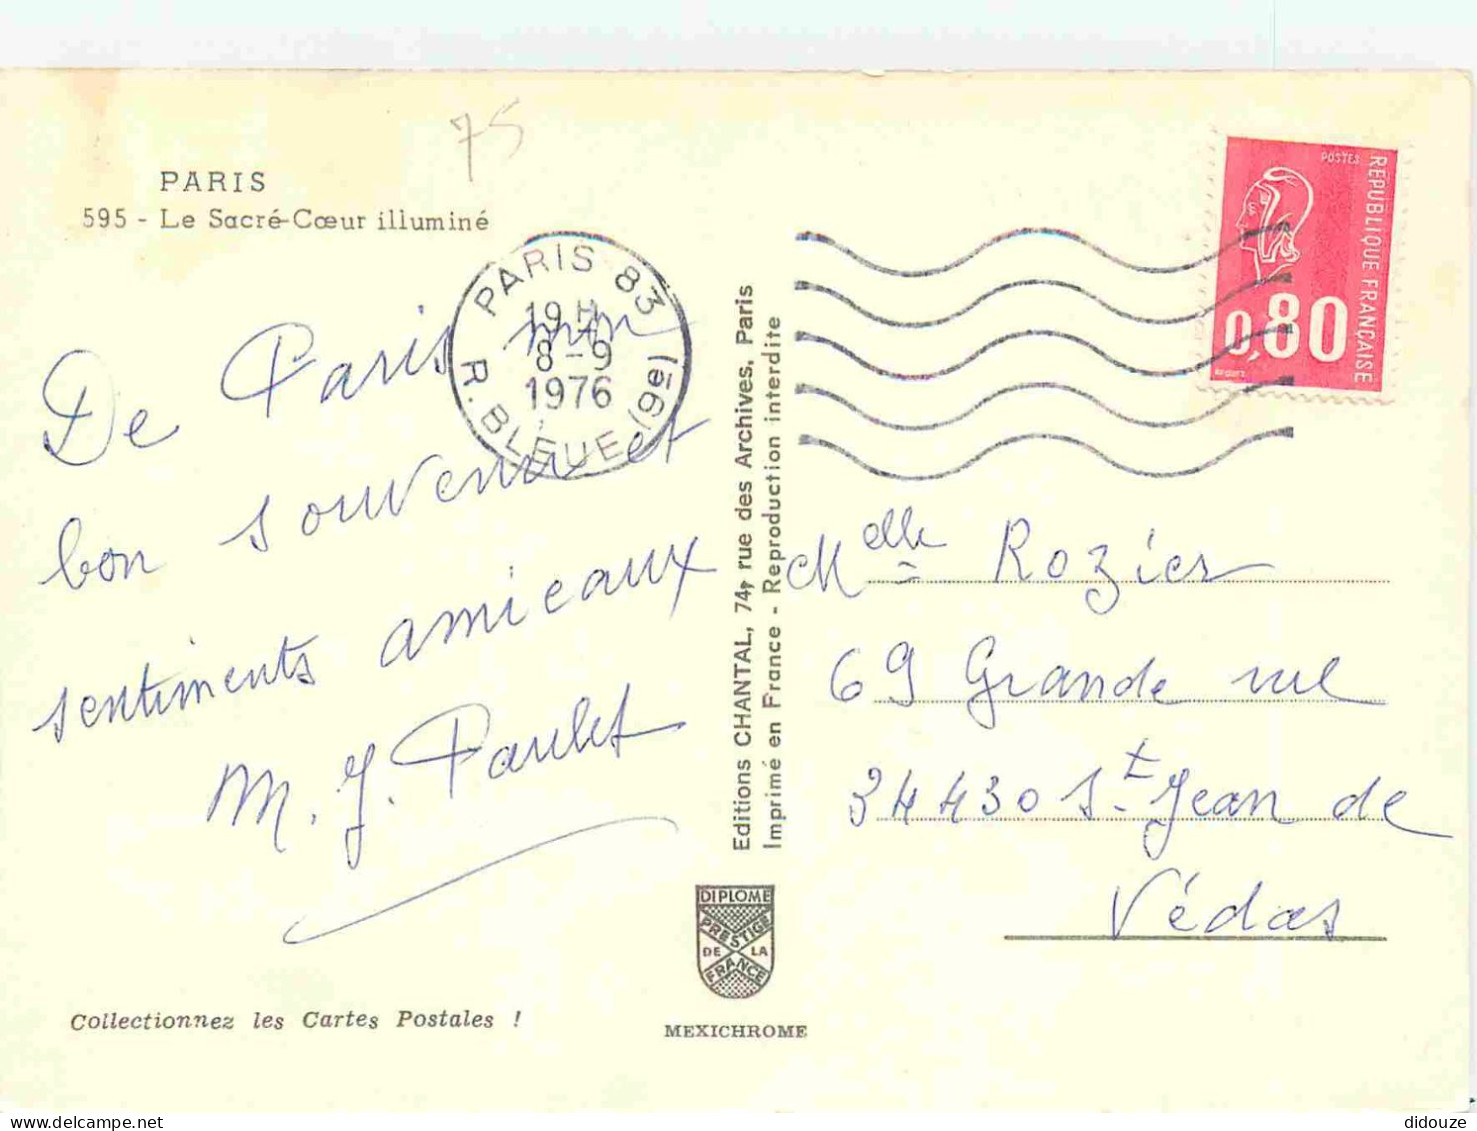 75
PARIS
595 - Le Sacré-Cœur illuminé
PARIS 83
19 H
8 - 9
1976
R. BLEUE (9e)
POSTES
REPUBLIQUE FRANÇAISE
0,80
De Paris mon
bon souvenir et
sentiments amicaux
M. J. Paulet
Editions CHANTAL, 74, rue des Archives, Paris
Imprimé en France - Reproduction interdite
Melle Rozier
69 Grande rue
34430 St Jean de
Védas
DIPLOME
PRESTIGE
DE LA
FRANCE
MEXICHROME
Collectionnez les Cartes Postales !
didouze